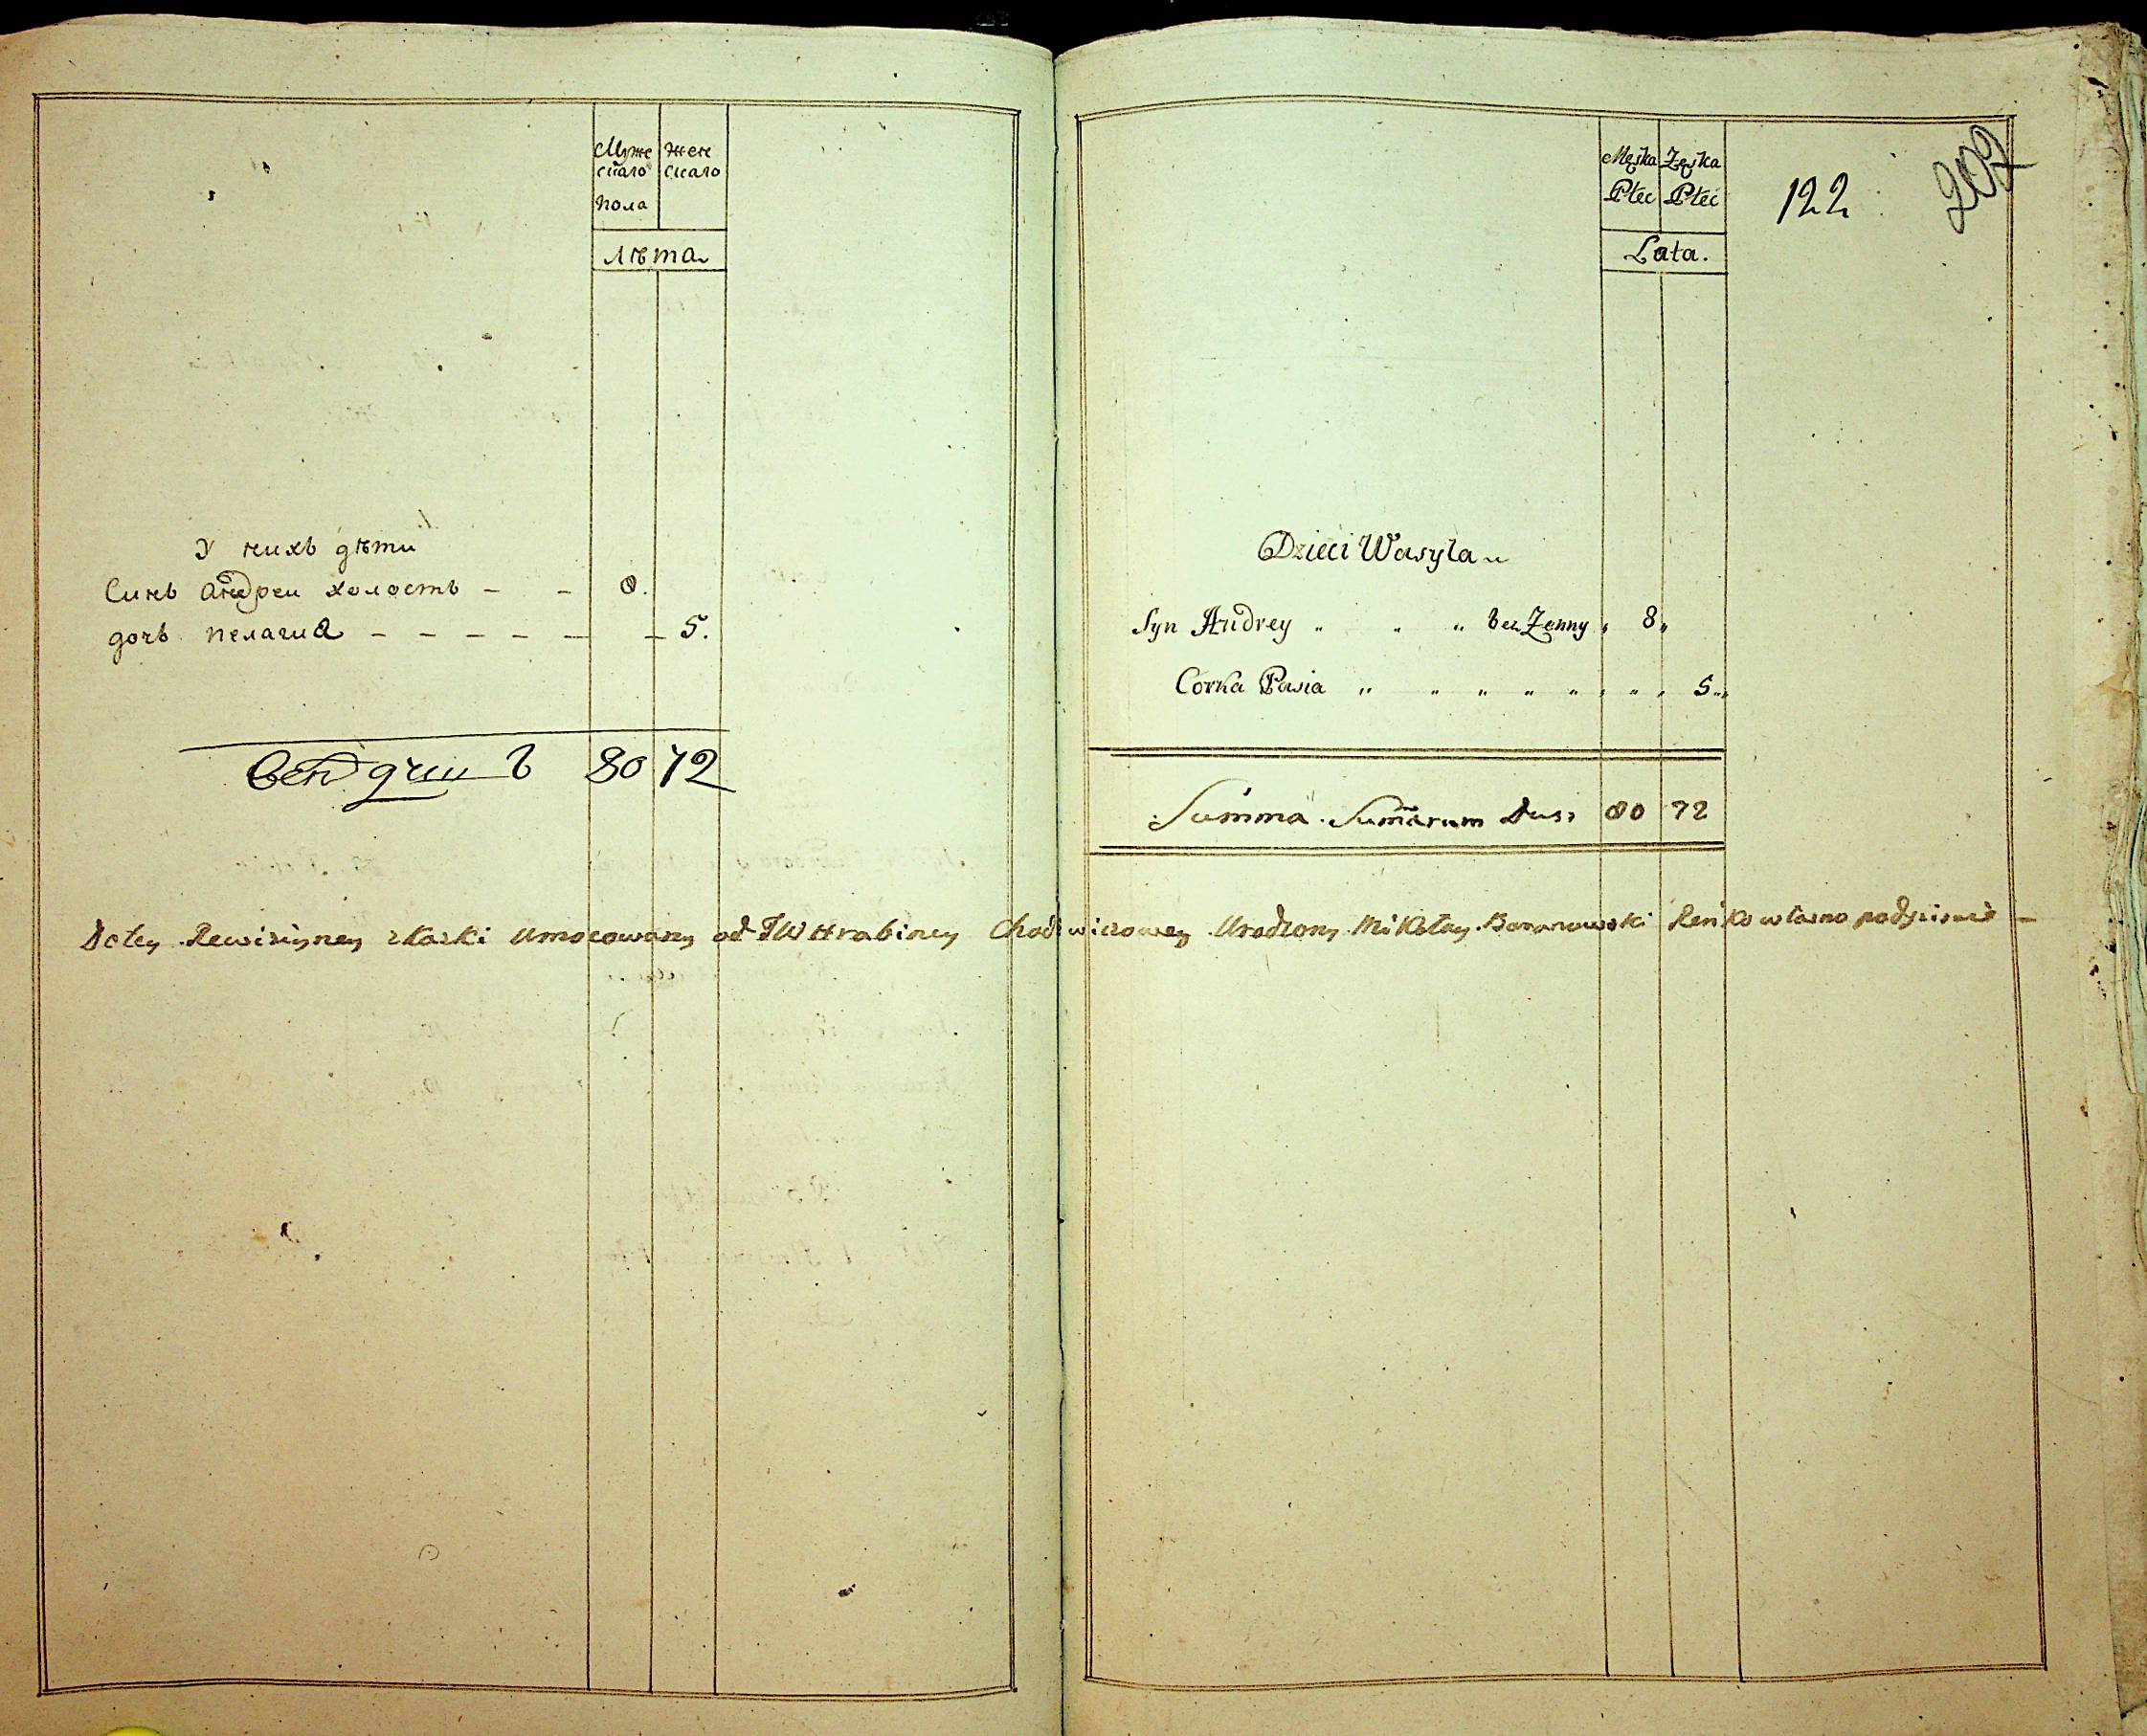 Муже
скаго
пола
жен
скаго
лѣта
У нихъ дѣти
Синъ Андреи холостъ - - 8.
дочъ пелагиа - - - - - - 5.
80 72
Męska
Płeć
Zęska
Płeć
Lata.
122
207
Dzieci Wasyla
Syn Andrey " " " bez Zonny " 8 "
Corka Pasia " " " " " " " " 5 "
Summa Sumarum Dusz 80 72
Do tey Rewizyiney skaski umocowany od JW Hrabiney Chodkiewiczowey Urodzony Mikołay Baranowski Reńko własno podpisuie —